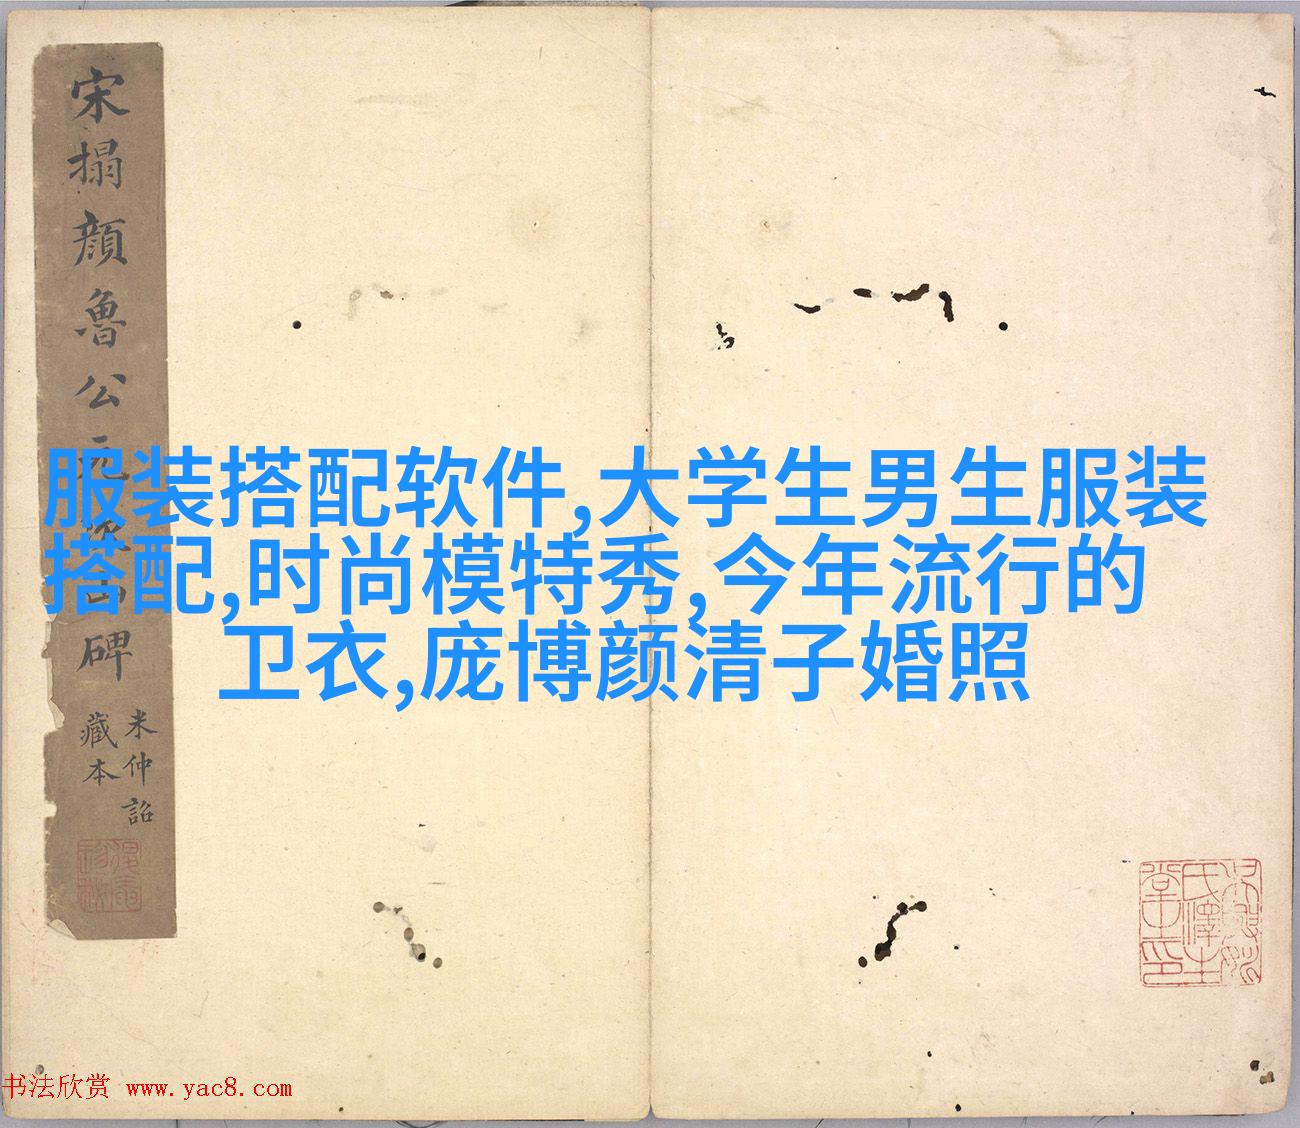 宋搨顔魯公元次山碑
米仲詔
藏本
服装搭配软件,大学生男生服装
搭配,时尚模特秀,今年流行的
卫衣,庞博颜清子婚照
书法欣赏 www.yac8.com